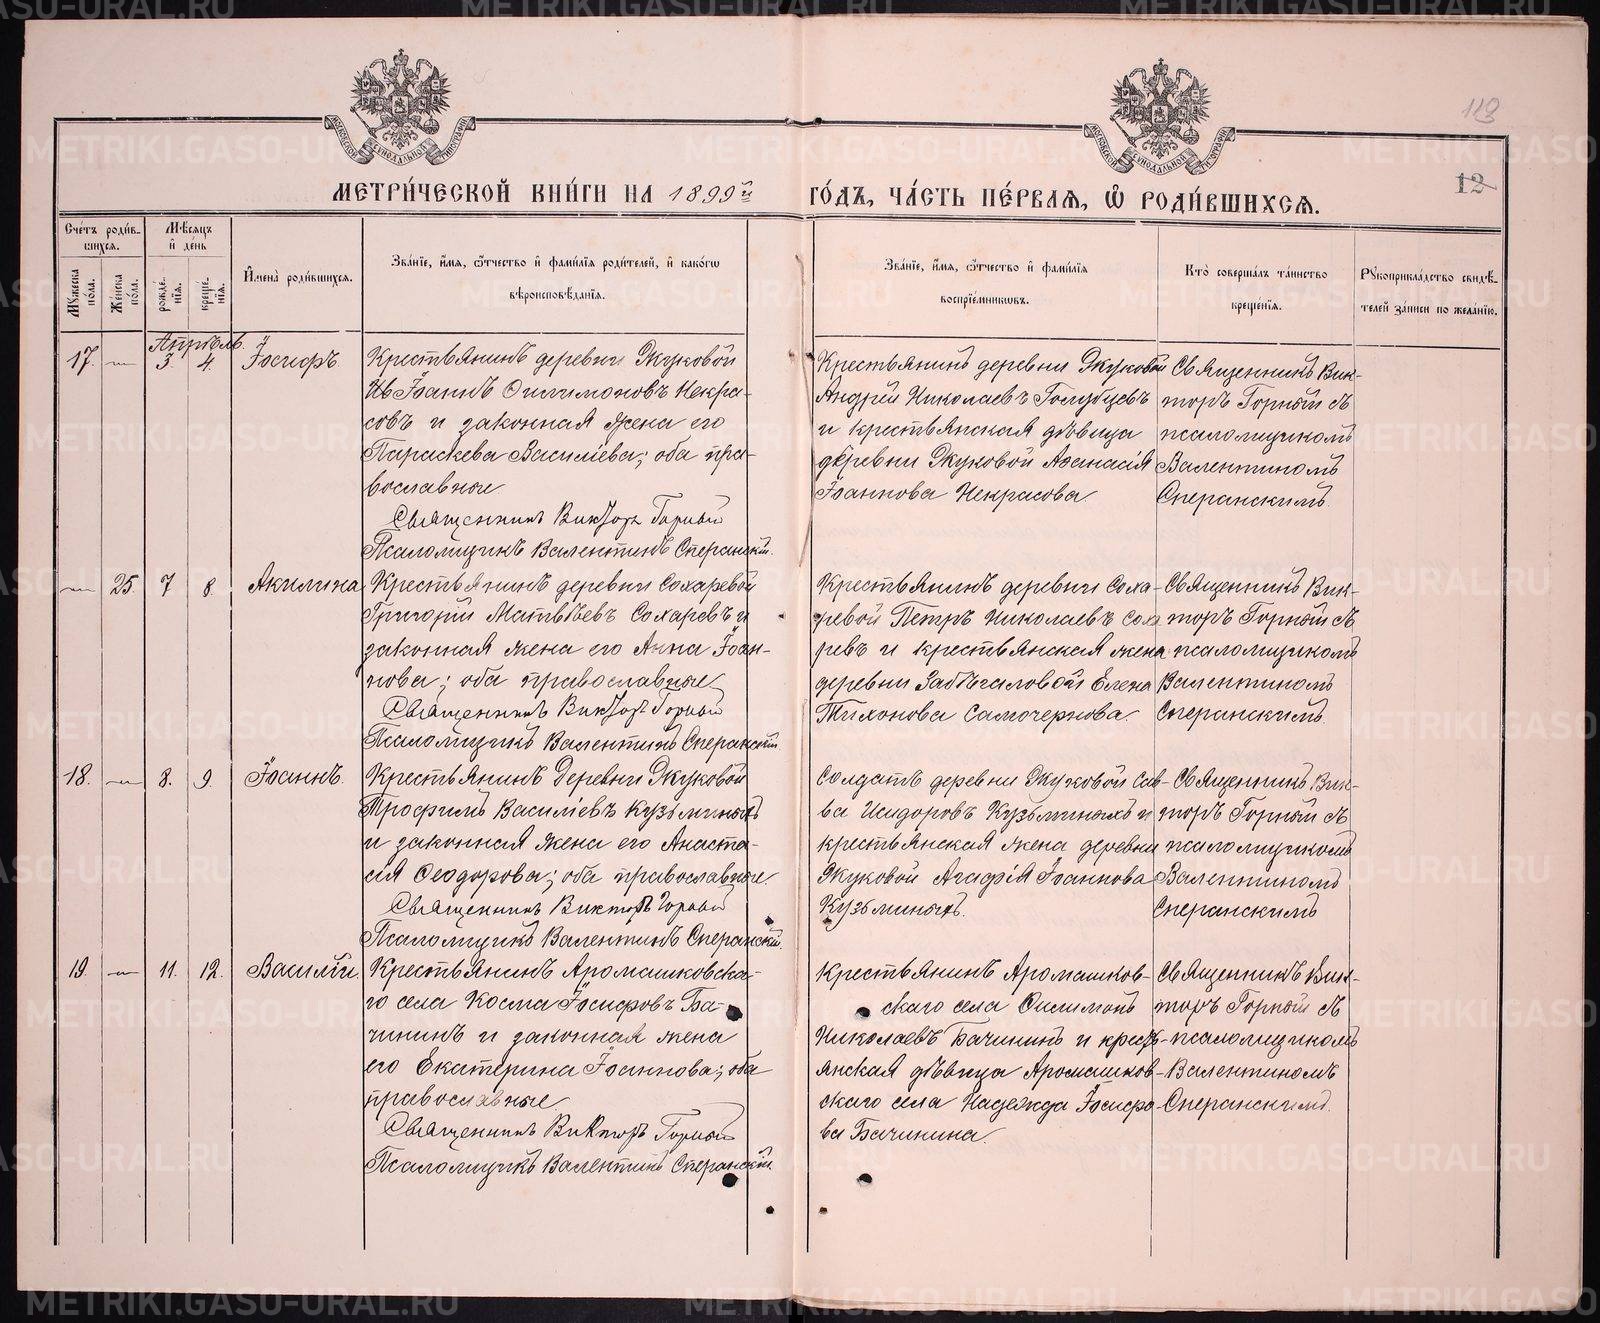 113
12
МЕТРИ́ЧЕСКОЙ КНИ́ГИ НА 1899й ГО́ДЪ, ЧА́СТЬ ПЕ́РВАЯ, Ѡ РОДИ́ВШИХСЯ.
Сче́тъ роди́в-
шихся.
Мѣ́сяцъ
и҆ де́нь
Мꙋжеска по́ла.
Же́нска по́ла.
рожде́-
нїя.
креще́-
нїя.
И҆мена̀ роди́вшихся.
Зва́нїе, и҆́мя, ѻ҆́тчество и҆ фами́лїя роди́телей, и҆ како́гѡ
вѣроисповѣ́данїя.
Зва́нїе, и҆́мя, ѻ҆́тчество и҆ фами́лїя
воспрїе́мникѡвъ.
Кто̀ соверша́лъ та́инство
креще́нїя.
Рꙋкоприкла́дство свидѣ́-
телей за́писи по жела́нїю.
Апрѣль
17. — 3. 4. Іосифъ.
Крестьянинъ деревни Жуковой
Ив Іоаннъ Филимоновъ Некра-
совъ и законная жена его
Параскева Василіева; оба пра-
вославные
Священникъ Викторъ Горный
Псаломщикъ Валентинъ Сперанскій.
Крестьянинъ деревни Жуковой
Андрей Николаевъ Голубцевъ
и крестьянская дѣвица
деревни Жуковой Афанасія
Іоаннова Некрасова
Священникъ Вик-
торъ Горный съ
псаломщикомъ
Валентиномъ
Сперанскимъ.
— 25. 7 8. Акилина
Крестьянинъ деревни Сохаревой
Григорій Матвѣевъ Сохаревъ и
законная жена его Анна Іоан-
нова; оба православные
Священникъ Викторъ Горный
Псаломщикъ Валентинъ Сперанскій
Крестьянинъ деревни Соха-
ревой Петръ Николаевъ Соха
ревъ и крестьянская жена
деревни Забѣгаловой Елена
Тихонова Самочернова.
Священникъ Вик-
торъ Горный съ
псаломщикомъ
Валентиномъ
Сперанскимъ.
18. — 8. 9. Іоаннъ.
Крестьянинъ деревни Жуковой
Трофимъ Василіевъ Кузьминыхъ
и законная жена его Анаста-
сія Феодорова; оба православные.
Священникъ Викторъ Горный
Псаломщикъ Валентинъ Сперанскій.
Солдатъ деревни Жуковой Сав-
ва Исидоровъ Кузьминыхъ и
крестьянская жена деревни
Жуковой Агафія Іоаннова
Кузьминыхъ.
Священникъ Вик-
торъ Горный съ
псаломщикомъ
Валентиномъ
Сперанскимъ
19. — 11. 12. Василій.
Крестьянинъ Аромашковска-
го села Косма Іосифовъ Ба-
чининъ и законная жена
его Екатерина Іоаннова; оба
православные
Священникъ Викторъ Горный
Псаломщикъ Валентинъ Сперанскій.
Крестьянинъ Аромашков-
скаго села Филимонъ
Николаевъ Бачининъ и кресть-
янская дѣвица Аромашков-
скаго села Надежда Іосифо
ва Бачинина.
Священникъ Вик-
торъ Горный съ
псаломщикомъ
Валентиномъ
Сперанскимъ.
METRIKI.GASO-URAL.RU